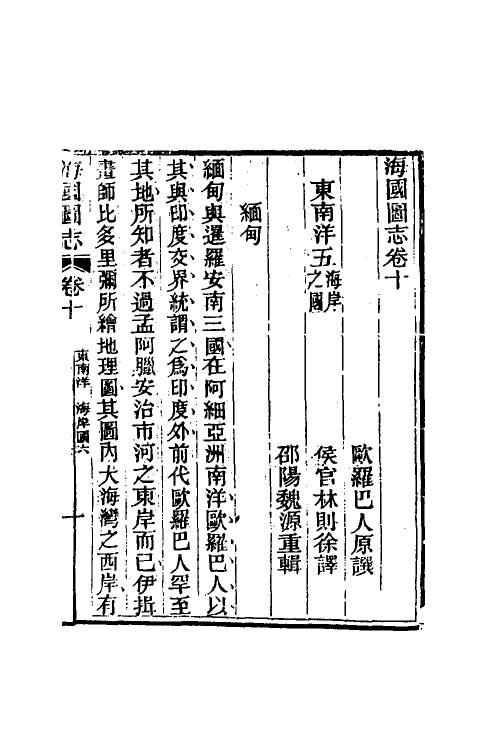 海國圖志卷十
歐羅巴人原譔
東南洋五海岸之國
侯官林則徐譯
邵陽魏源重輯
緬甸
緬甸與暹羅安南三國在阿細亞洲南洋歐羅巴人以
其與印度交界統謂之爲印度外前代歐羅巴人罕至
其地所知者不過孟阿臘安治市河之東岸而已伊揖
畫師比多里彌所繪地理圖其圖內大海灣之西岸有
海國圖志
卷十
東南洋 海岸國六
一